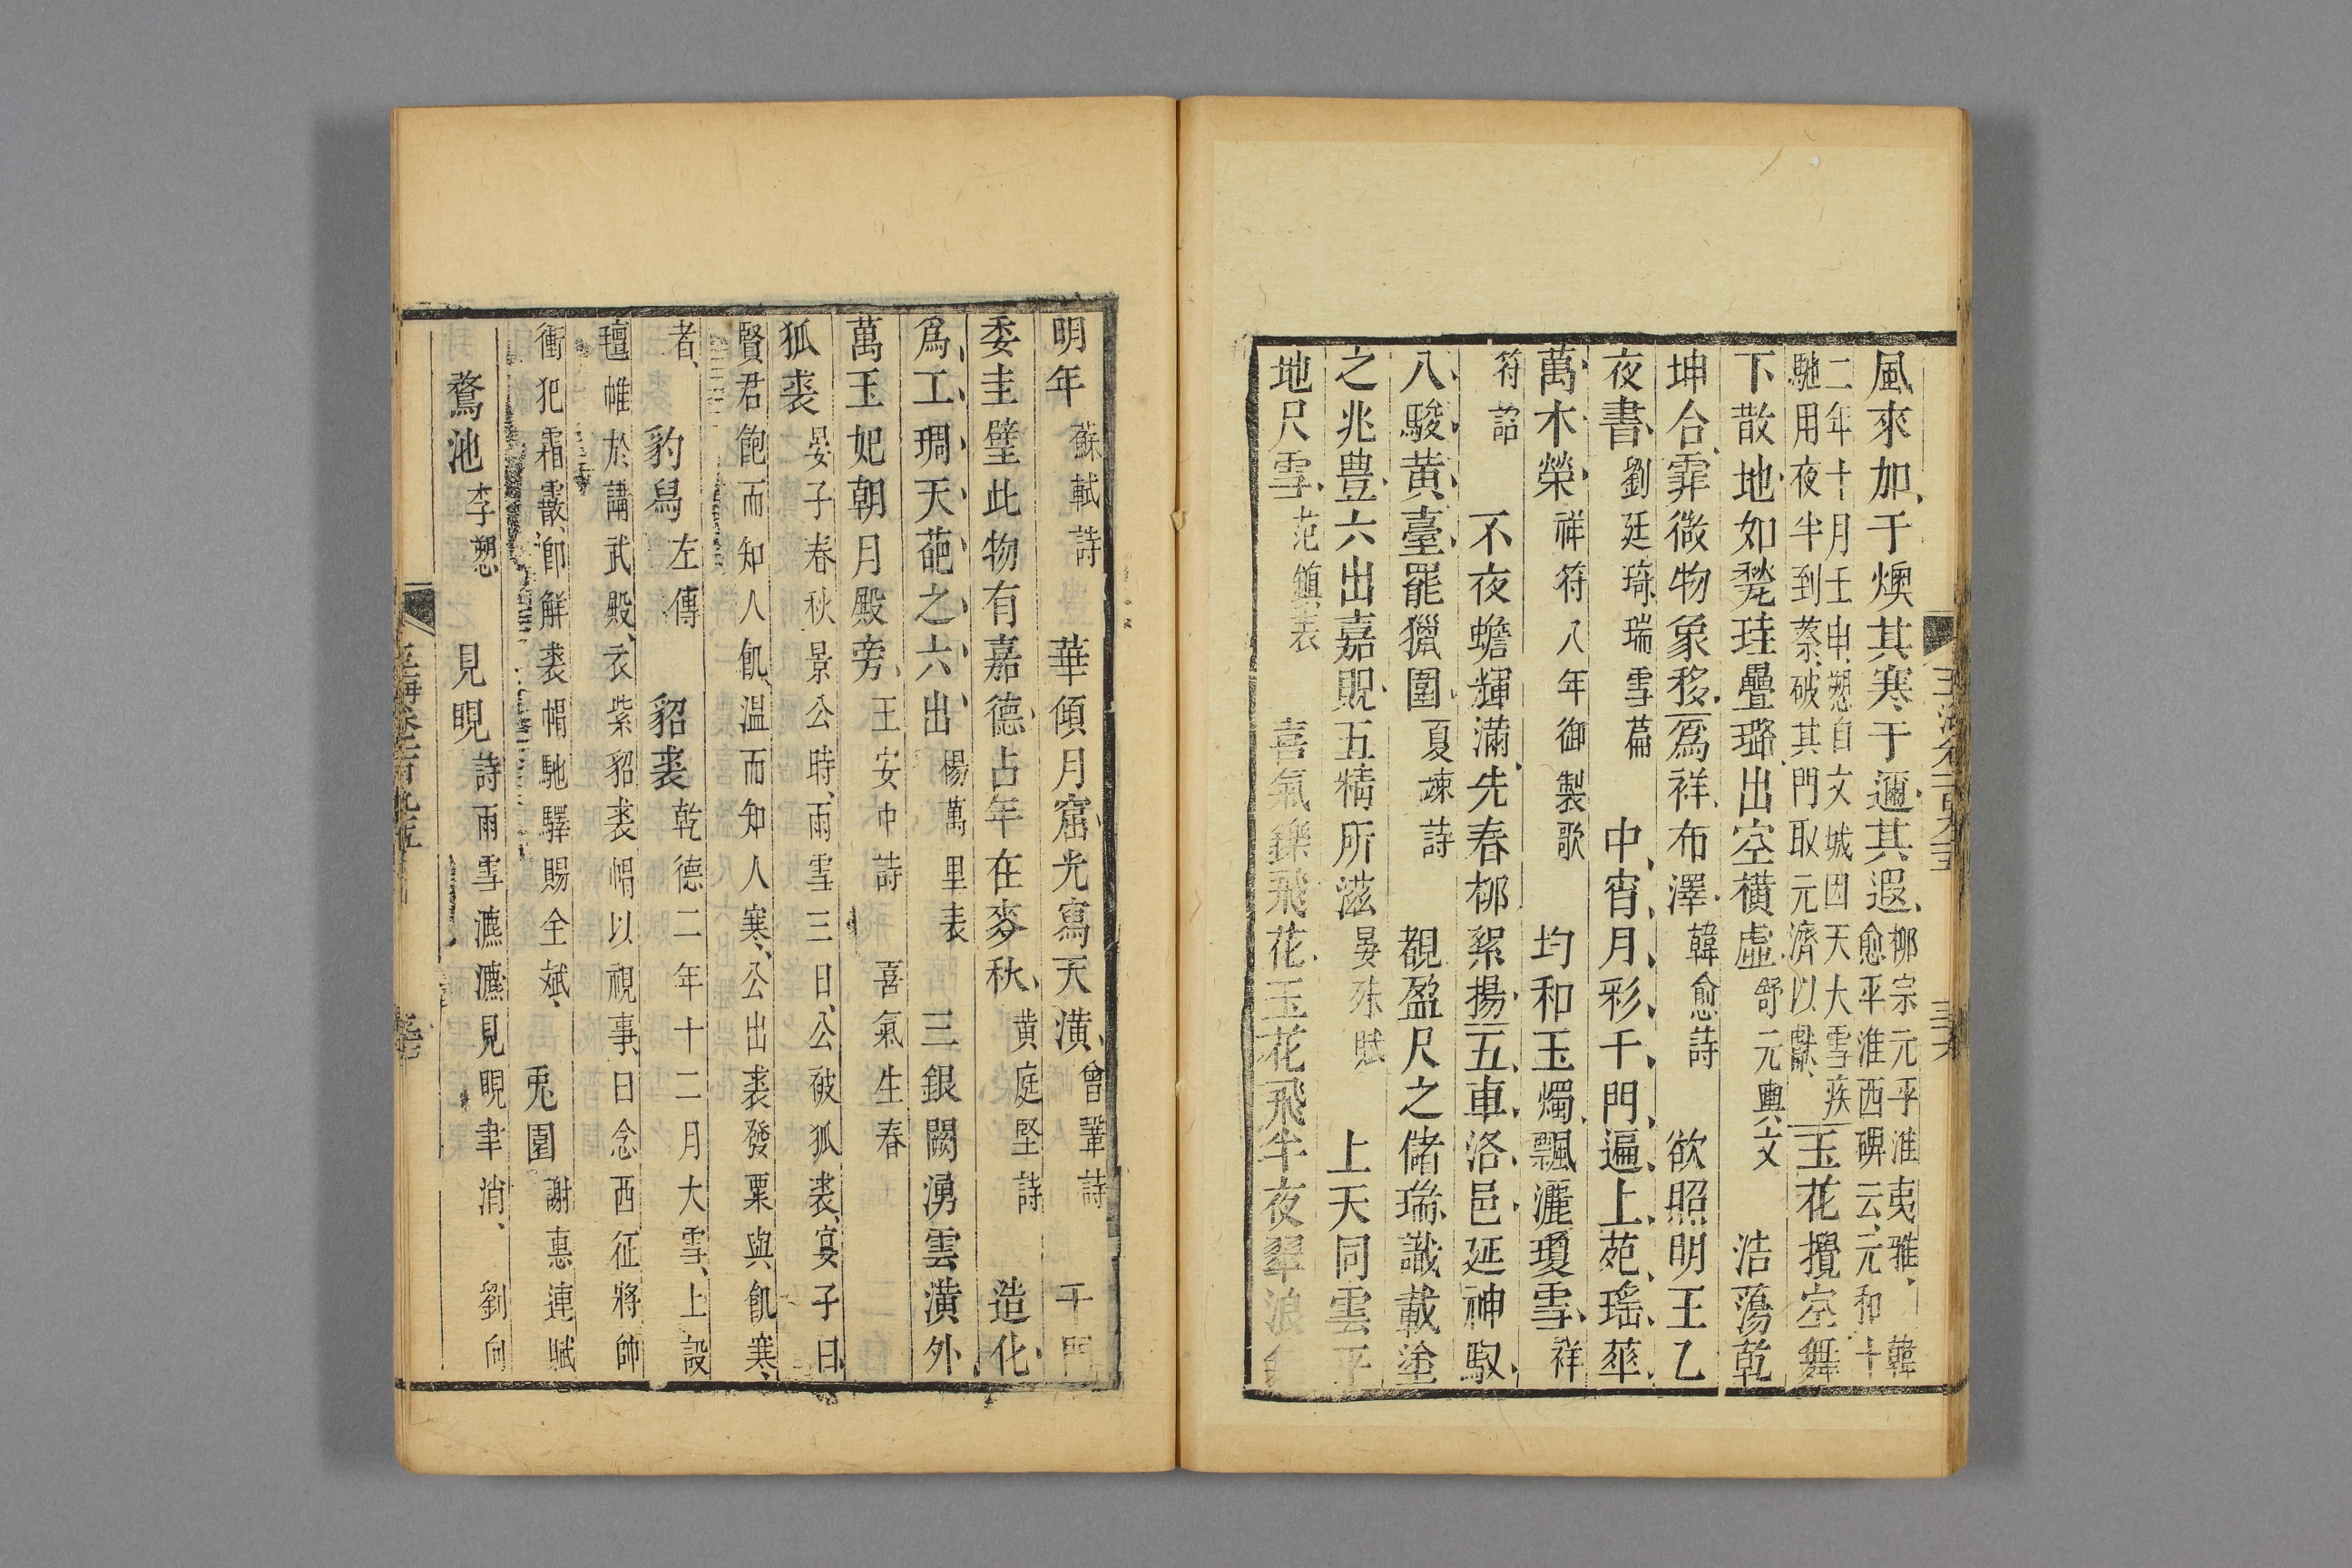 風來加于燠其寒于邇其遐柳宗元平淮夷雅韓
愈平淮西碑云元和十
二年十月壬申愬自文城因天大雪疾
馳用夜半到蔡破其門取元濟以獻玉花攪空舞
下散地如甃珪疊璐出空橫虛舒元輿文 浩蕩乾
坤合霏微物象移爲祥布澤韓愈詩 欲照明王乙
夜書劉廷琦瑞雪篇 中宵月彩千門遍上苑瑤華
萬木榮祥符八年御製歌 均和玉燭飄灑瓊雪祥
符詔 不夜蟾輝滿先春柳絮揚五車洛邑延神馭
八駿黃臺罷獵圍夏竦詩 覩盈尺之儲瑞識載塗
之兆豊六出嘉貺五精所滋晏殊賦 上天同雲平
地尺雪范鎮表 喜氣鑠飛花玉花飛半夜翠浪
明年蘇軾詩 華傾月窟光寫天潢曾鞏詩 千門
委圭璧此物有嘉德占年在麥秋黃庭堅詩 造化
爲工琱天葩之六出楊萬里表 三銀闕湧雲潢外
萬玉妃朝月殿旁王安中詩 喜氣生春
狐裘晏子春秋景公時雨雪三日公被狐裘宴子曰
賢君飽而知人飢溫而知人寒公出裘發粟與飢寒
者 豹舄左傳 貂裘乾德二年十二月大雪上設
氊帷於講武殿衣紫貂裘帽以視事曰念西征將帥
衝犯霜霰卽解裘帽馳驛賜全斌 兎園謝惠連賦
鵞池李愬 見晛詩雨雪瀌瀌見晛聿消 劉向